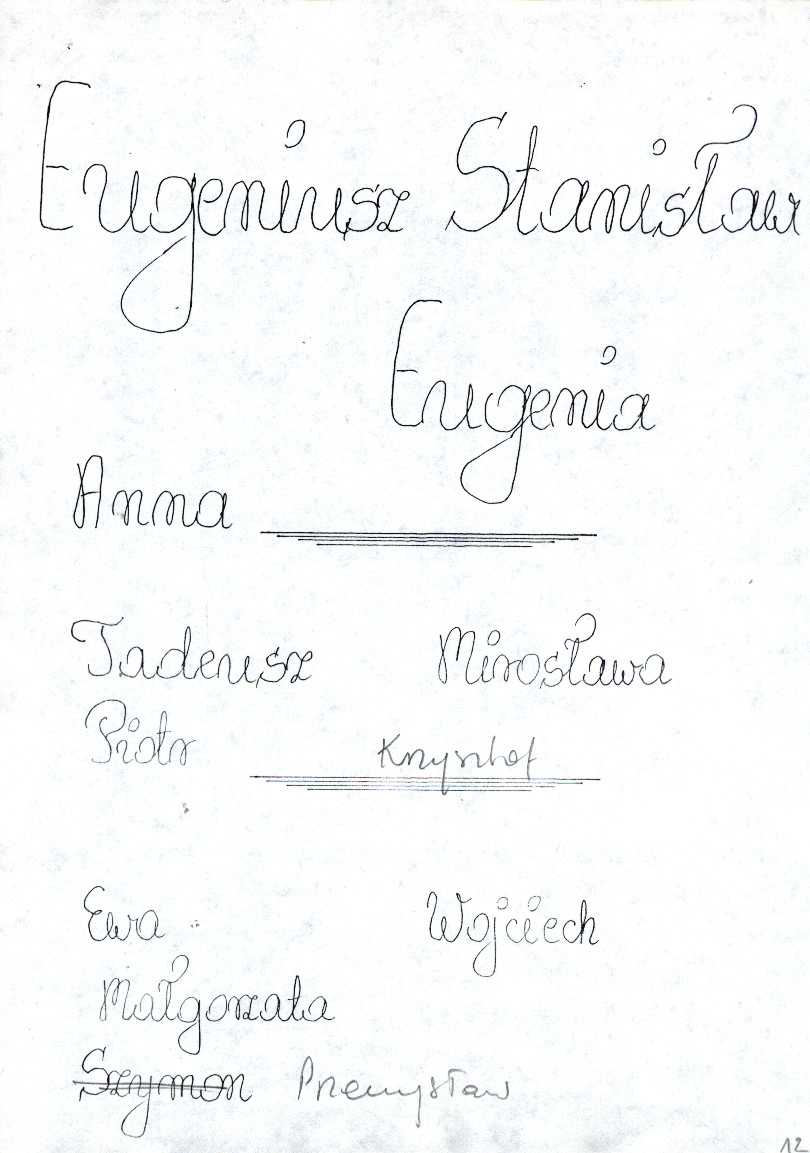 Eugeniusz Stanisław
Eugenia
Anna
Tadeusz Mirosława
Piotr Krzysztof
Ewa Wojciech
Małgorzata
Szymon Przemysław
12